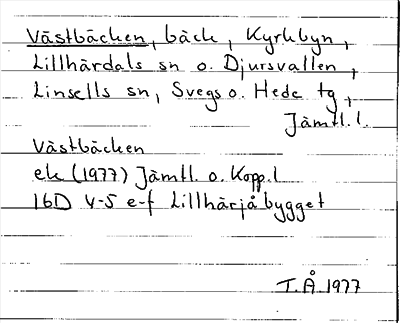 Västbäcken, bäck, Kyrkbyn,
Lillhärdals sn o. Djursvallen,
Linsells sn, Svegs o. Hede tg,
Jämtl. l.
Västbäcken
ek (1977) Jämtl. o. Kopp. l
16D 4-5 e-f Lillhärjåbygget
T. Å 1977